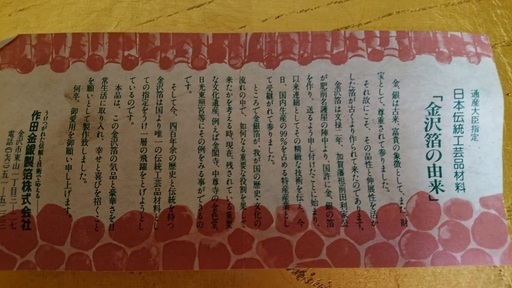 通産大臣指定
日本伝統工芸品材料
「金沢箔の由来」
金、銀は古来、富貴の象徴として、また、財
宝として、尊重されて参りました。
それ故にこそ、その品性や伸展性を活か
した箔が古くより作られて来たのであります。
金沢箔は文禄二年、加賀藩祖前田利家公
が肥前名護屋の陣中より、国許に金、銀の箔
を作り、送るよう申し付けたことに始まり、
以来連綿としてその精緻な技術を伝え、今
日、国内生産の99％を占める特産産業とし
て受継がれて参りました。
ところで金銀箔が、我が国の歴史・文化の
流れの中で、如何なる重要な役割を果して
来たかを考える時、現在、残されている重要
な文化遺産、例えば金閣寺、中尊寺の金色堂、
日光東照宮等にその例をみる事ができるの
です。
そして今、四百年余の歴史と伝統を持つ
金沢箔は国より唯一の伝統工芸品材料とし
ての指定をうけ一層の飛躍をとげようとし
ているのです。
本品は、この金沢箔の気品と豪華さを日
常生活に取り入れ、幸せと喜びを招くこと
を願いとして製作致しました。
何卒、御愛用を御願い申し上げます。
作田金銀製箔株式会社
金沢市東山1丁目
電話